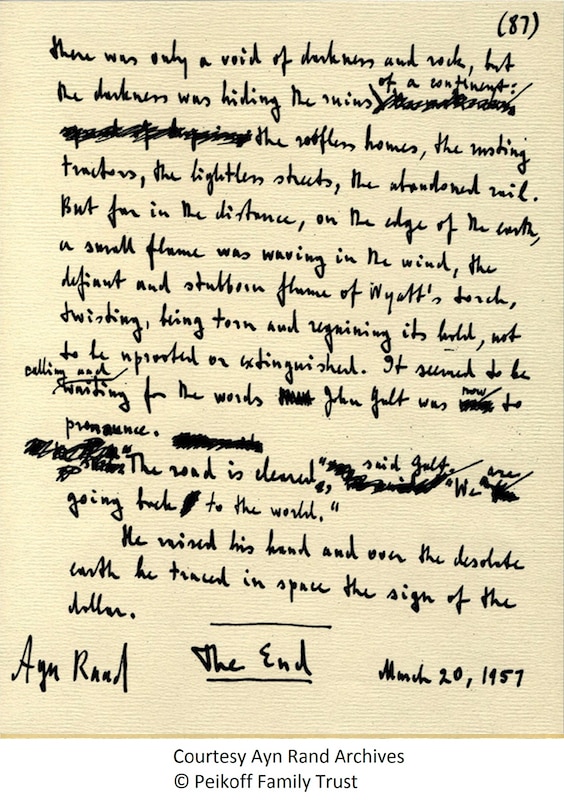 (87)
there was only a void of darkness and rock, but
of a continent:
the darkness was hiding the ruins
the roofless homes, the rusting
tractors, the lightless streets, the abandoned rail.
But far in the distance, on the edge of the earth,
a small flame was waving in the wind, the
defiant and stubborn flame of Wyatt's torch,
twisting, being torn and regaining its hold, not
to be uprooted or extinguished. It seemed to be
calling and
waiting for the words John Galt was now to
pronounce.
"The road is cleared", said Galt. "We are
going back to the world."
He raised his hand and over the desolate
earth he traced in space the sign of the
dollar.
The End
Ayn Rand
March 20, 1957
Courtesy Ayn Rand Archives
© Peikoff Family Trust